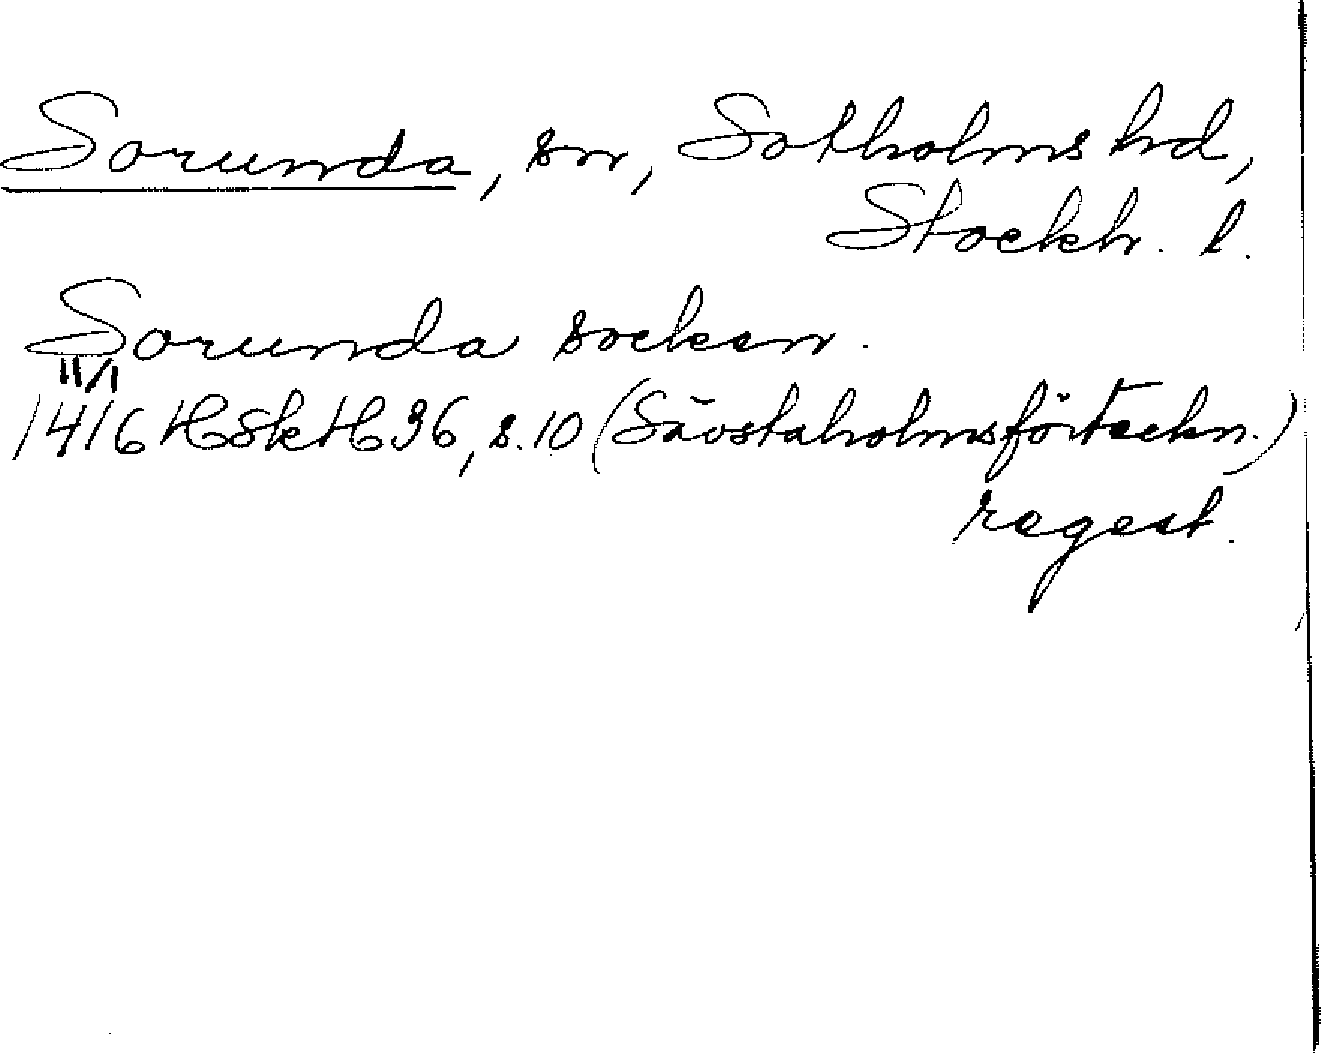 Sorunda, sn, Sotholms hd,
Stockh. l.
Sorunda socken.
11/1
1416 HSk H 36, s. 10 (Sävstaholmsförteckn.)
regest.